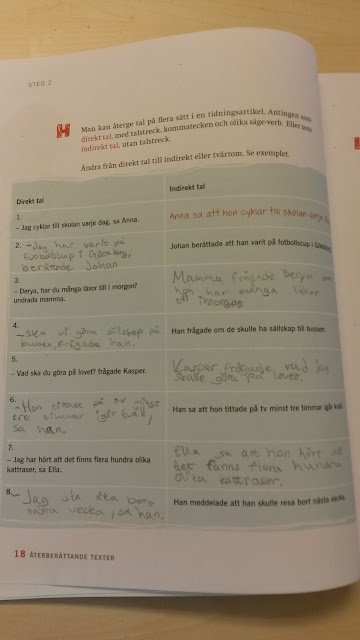 STEG 2
H
Man kan återge tal på flera sätt i en tidningsartikel. Antingen som
direkt tal, med talstreck, kommatecken och olika säge-verb. Eller som
indirekt tal, utan talstreck.
Ändra från direkt tal till indirekt eller tvärtom. Se exemplet.
Direkt tal
Indirekt tal
1.
– Jag cyklar till skolan varje dag, sa Anna.
Anna sa att hon cyklar till skolan varje
2. – Jag har varit på
fotbollscup i Göteborg,
berättade Johan
Johan berättade att han varit på fotbollscup i
3.
– Derya, har du många läxor till i morgon?
undrade mamma.
Mamma frågade derya om
hon har många läxor
till imorgon
4.
göra sällskap på
bussen, frågade han.
Han frågade om de skulle ha sällskap till bussen.
5.
– Vad ska du göra på lovet? frågade Kasper.
Kasper frågade, vad jag
skulle göra på lovet.
6. – Hon tittade på tv minst
tre timmar igår kväll,
sa han.
Han sa att hon tittade på tv minst tre timmar igår kväll.
7.
– Jag har hört att det finns flera hundra olika
kattraser, sa Ella.
Ella sa att hon hört
det fanns flera hundra
olika kattraser.
8. – Jag ska bort
nästa vecka, sa han.
Han meddelade att han skulle resa bort nästa vecka
18 ÅTERBERÄTTANDE TEXTER